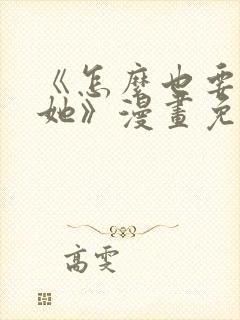 《怎麼也要
她》漫畫免
高雯